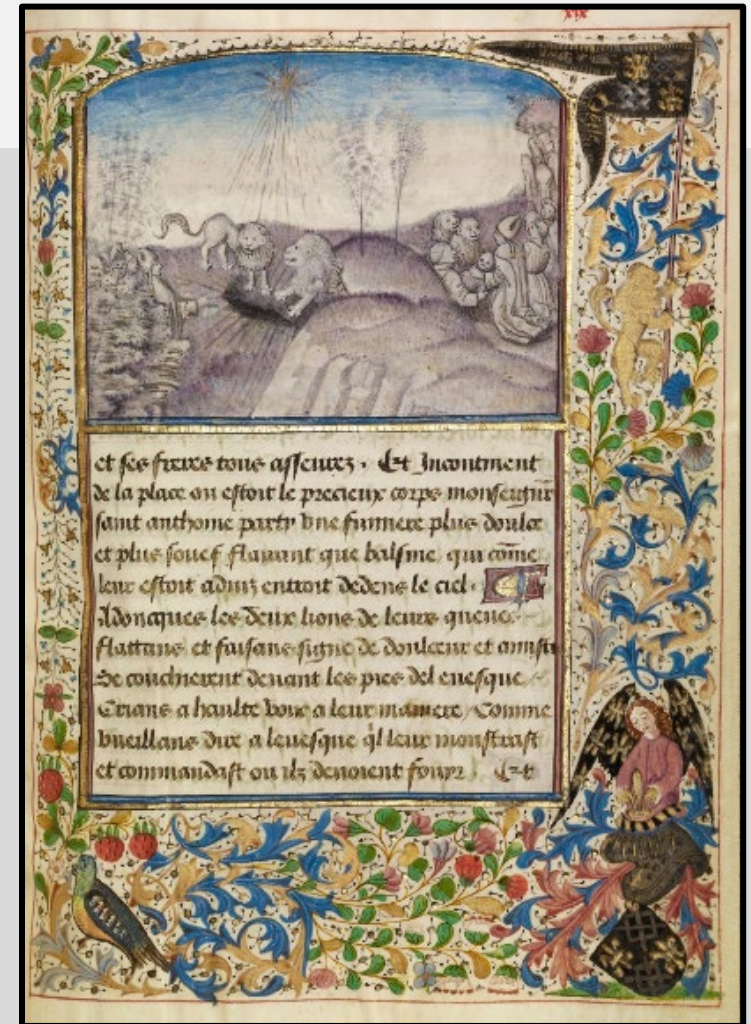 xix
et ses freres tous asseurez . Et Incontinent
de la place ou estoit le precieux corps monseigneur
saint anthoine party vne fumiere plus doulce
et plus souef flairant que balsme qui cōme
leur estoit aduiz entroit dedens le ciel .
Adoncques les deux lions de leurs queue
flattans et faisans signe de doulceur et amistie
Se coucherent deuant les pies del euesque
Crians a haulte voix a leur maniere Comme
vueillans dire a leuesque q̄l leur monstrast
et commandast ou ilz deuoient fouyr Et